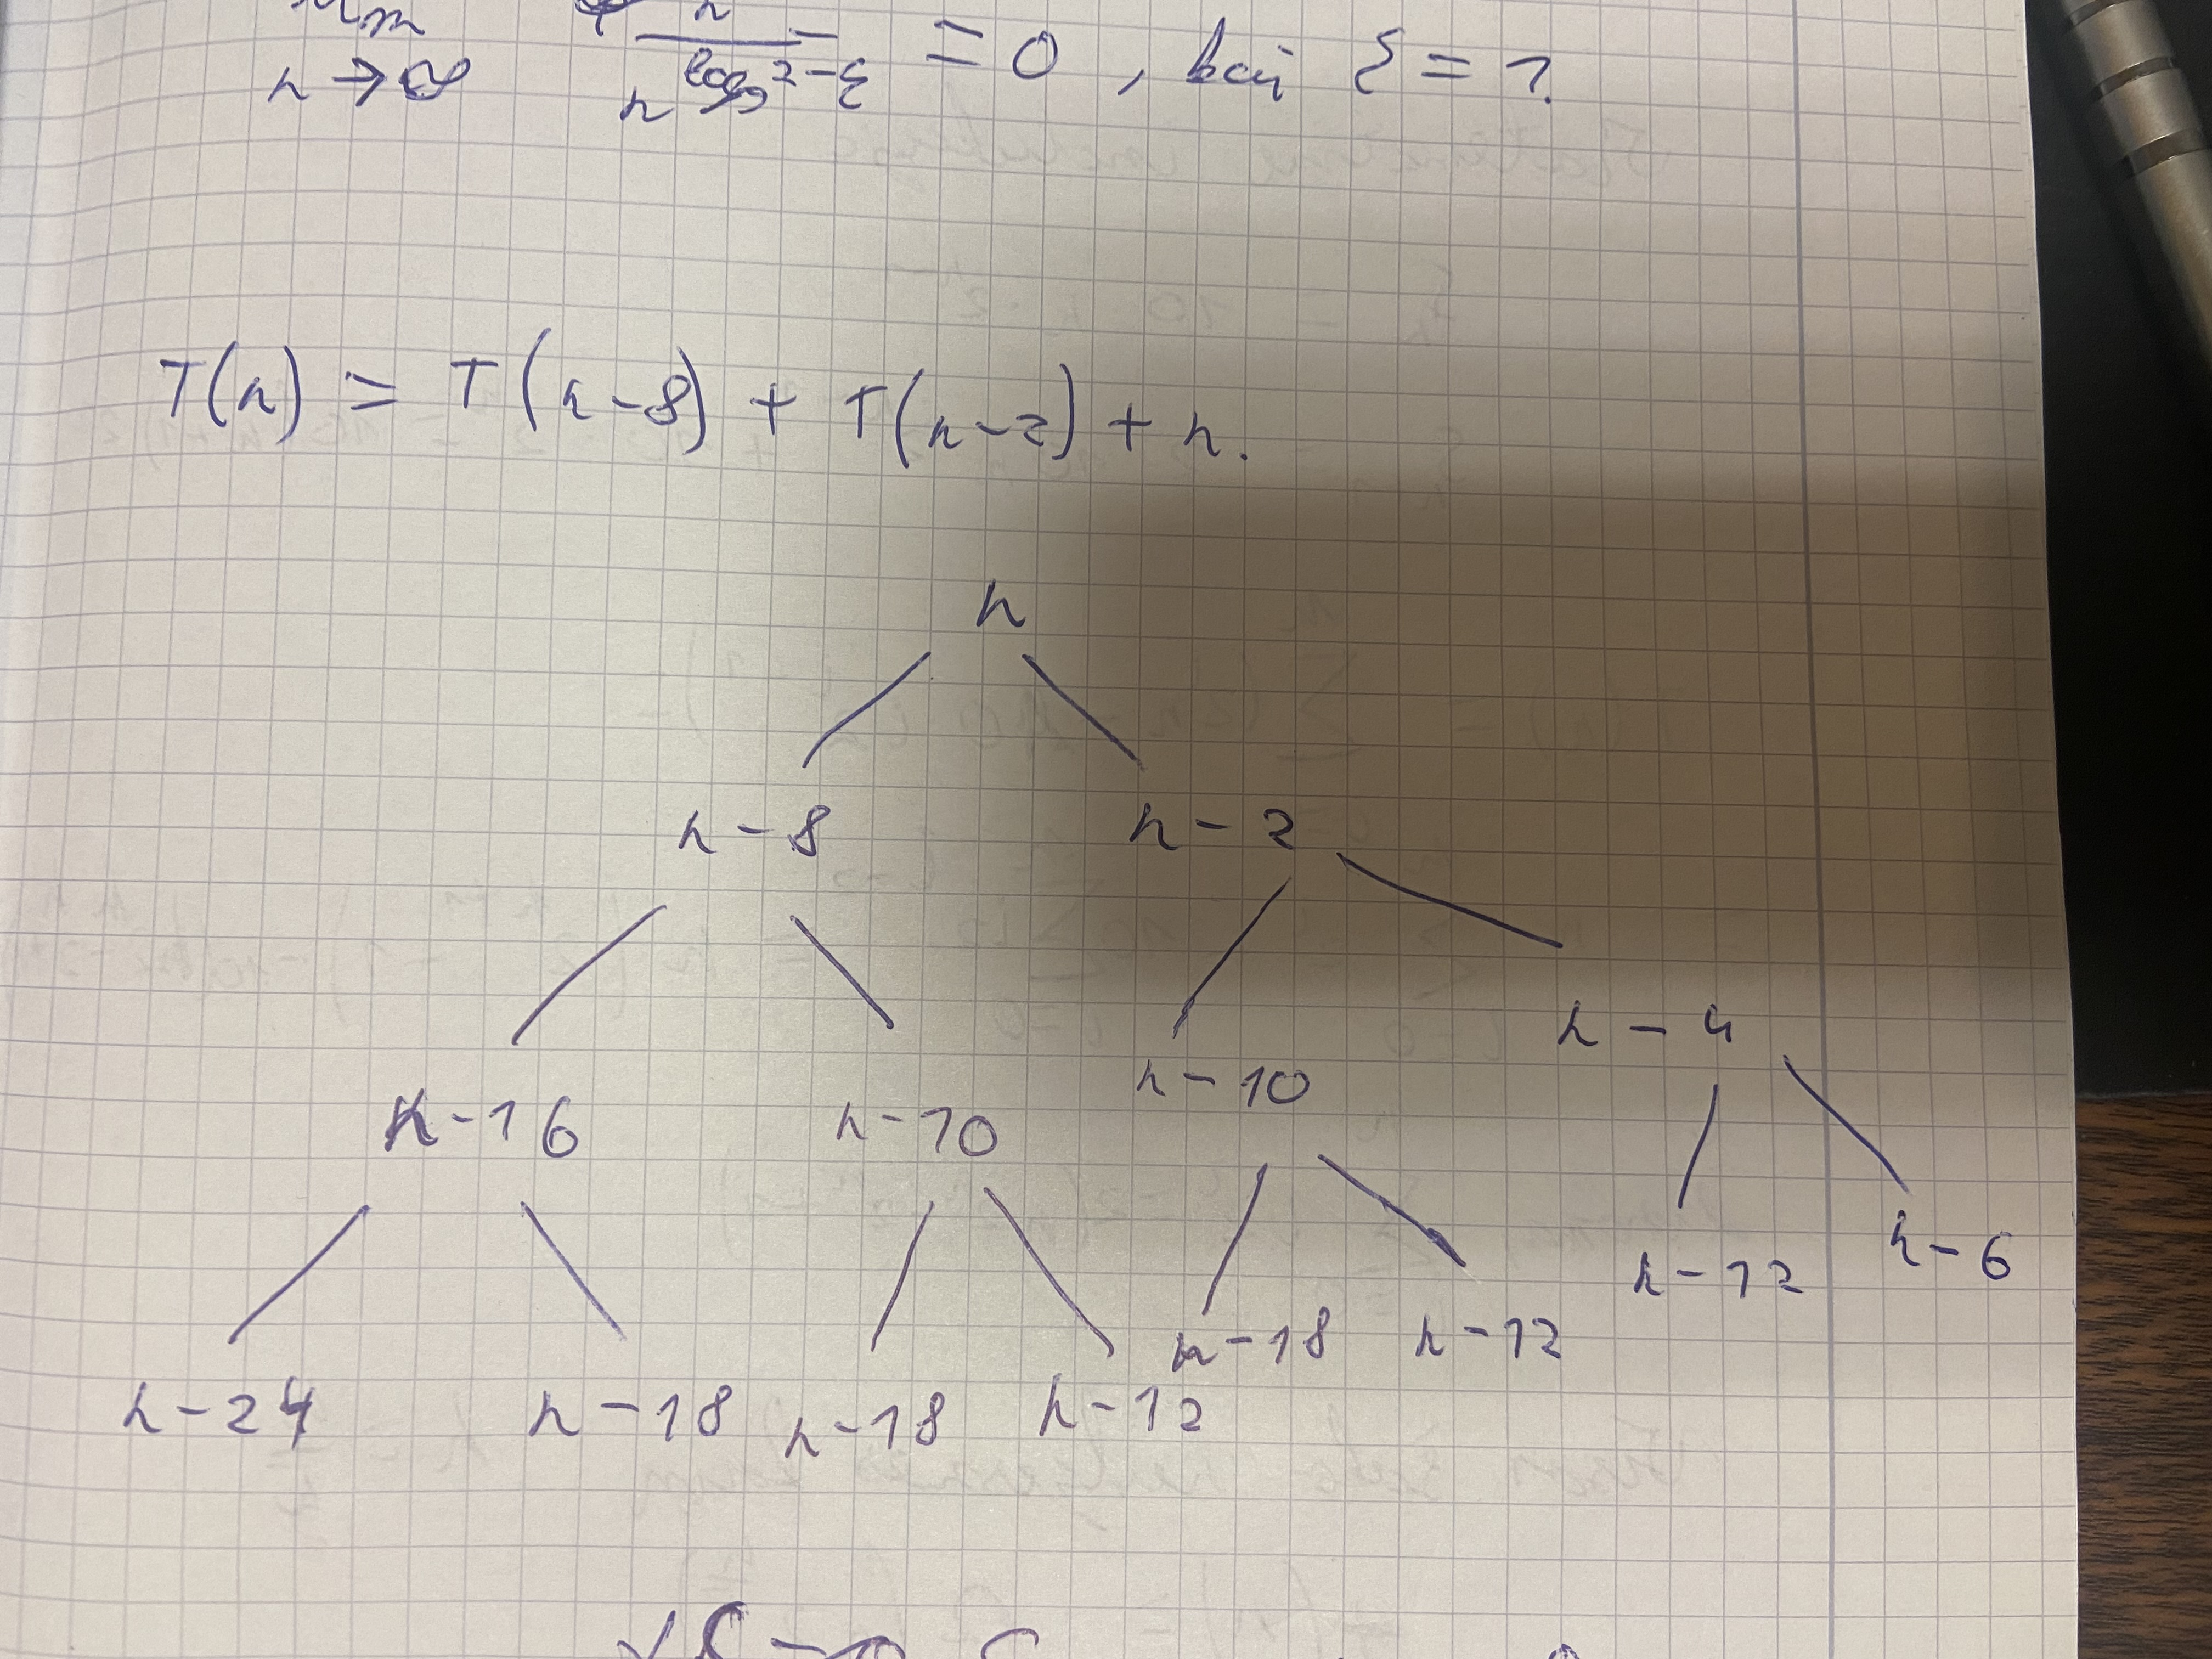 n → ∞ n / n^{log_5 2 - ε} = 0, kai ε = ?
T(n) = T(n-8) + T(n-2) + n.
n
n-8 n-2
n-16 n-10 n-10 n-4
n-24 n-18 n-18 n-12 n-18 n-12 n-12 n-6